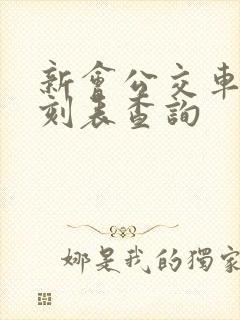 新會公交車
刻表查詢
娜是我的獨家